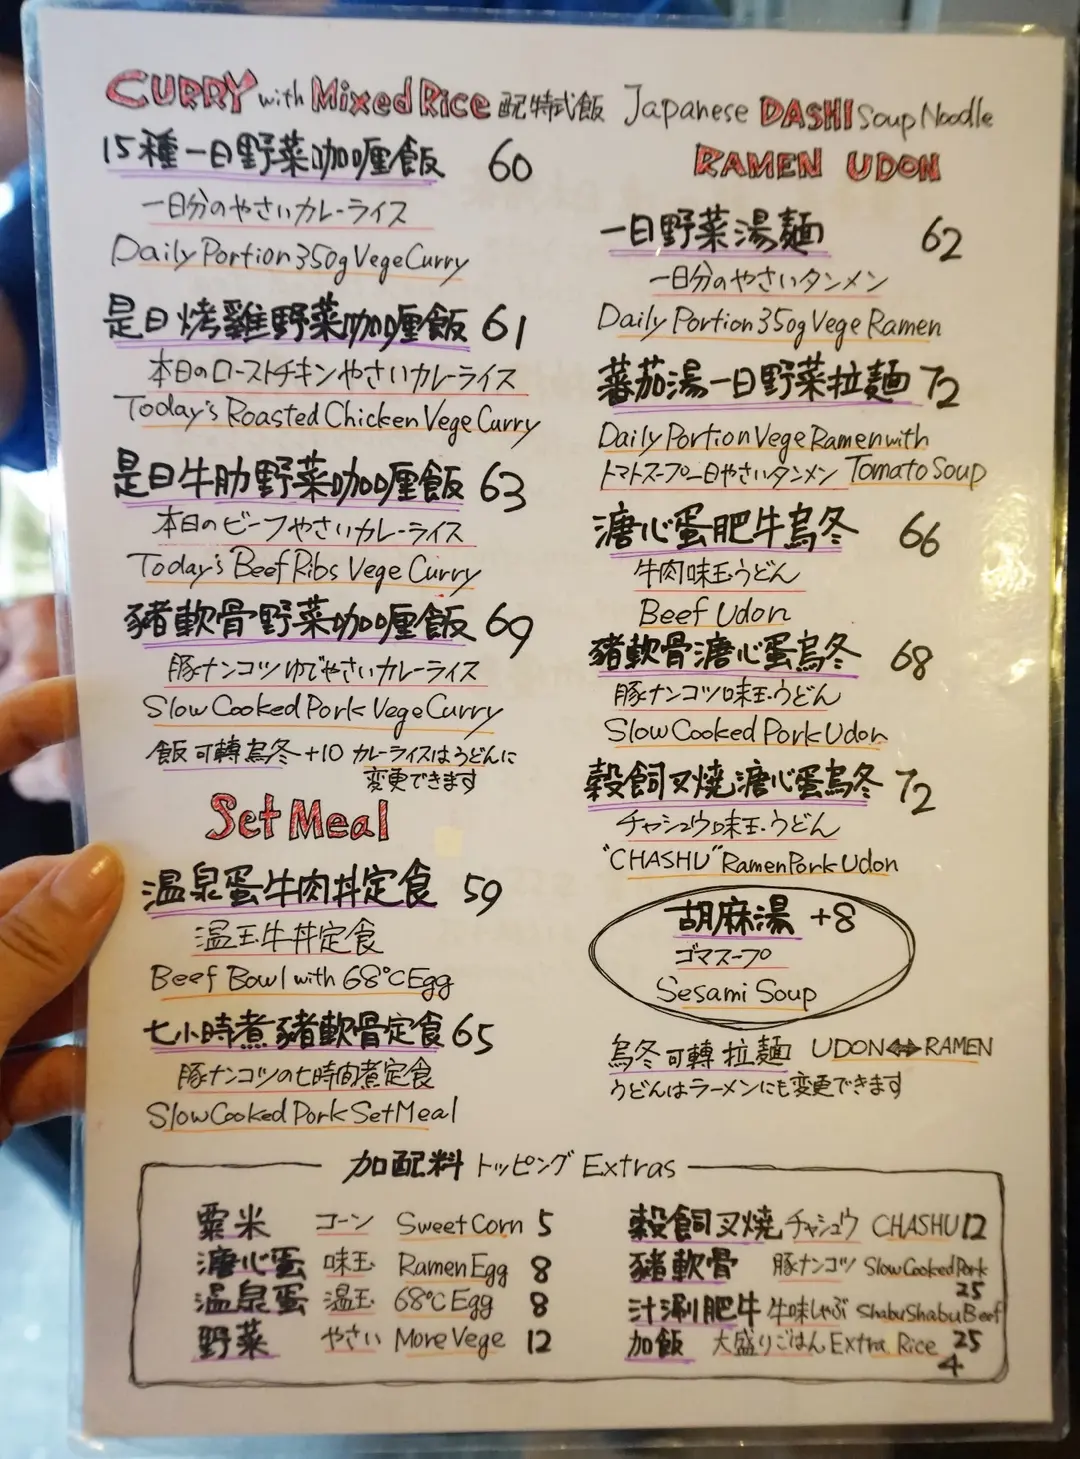 CURRY with Mixed Rice 配特式飯
15種一日野菜咖喱飯 60
一日分のやさいカレーライス
Daily Portion 350g Vege Curry
是日烤雞野菜咖喱飯 61
本日のローストチキンやさいカレーライス
Today's Roasted Chicken Vege Curry
是日牛肋野菜咖喱飯 63
本日のビーフやさいカレーライス
Today's Beef Ribs Vege Curry
豬軟骨野菜咖喱飯 69
豚ナンコツゆでやさいカレーライス
Slow Cooked Pork Vege Curry
飯可轉烏冬+10 カレーライスはうどんに
変更できます
Set Meal
温泉蛋牛肉丼定食 59
温玉牛丼定食
Beef Bowl with 68°C Egg
七小時煮豬軟骨定食 65
豚ナンコツの七時間煮定食
Slow Cooked Pork Set Meal
Japanese DASHI Soup Noodle
RAMEN UDON
一日野菜湯麺 62
一日分のやさいタンメン
Daily Portion 350g Vege Ramen
蕃茄湯一日野菜拉麺 72
Daily Portion Vege Ramen with
トマトスープ一日やさいタンメン Tomato Soup
溏心蛋肥牛烏冬 66
牛肉味玉うどん
Beef Udon
豬軟骨溏心蛋烏冬 68
豚ナンコツ味玉うどん
Slow Cooked Pork Udon
穀飼叉燒溏心蛋烏冬 72
チャシュウ味玉うどん
"CHASHU" Ramen Pork Udon
胡麻湯 +8
ゴマスープ
Sesami Soup
烏冬可轉拉麺 UDON⇔RAMEN
うどんはラーメンにも変更できます
加配料 トッピング Extras
粟米 コーン Sweet Corn 5
溏心蛋 味玉 Ramen Egg 8
温泉蛋 温玉 68°C Egg 8
野菜 やさい More Vege 12
穀飼叉燒 チャシュウ CHASHU 12
豬軟骨 豚ナンコツ Slow Cooked Pork
25
汁涮肥牛 牛味しゃぶ ShabuShabu Beef
25
加飯 大盛りごはん Extra Rice
4